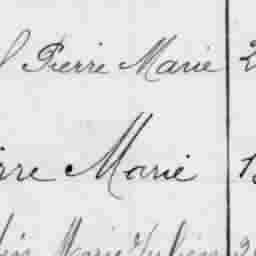 Pierre Marie 2
rre Marie 1
Marie Julien 2